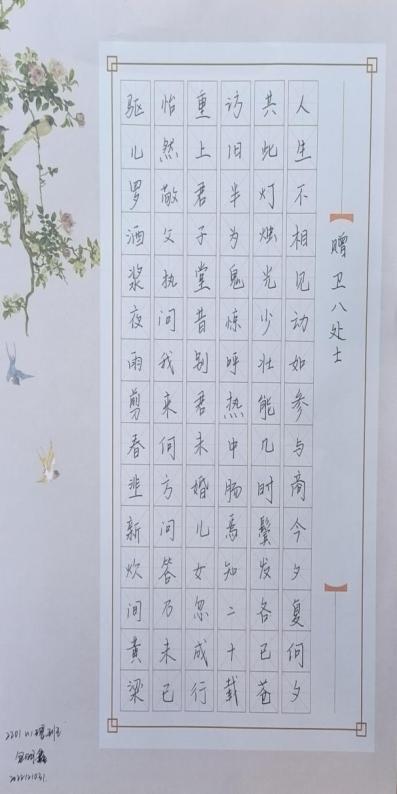 赠卫八处士
人生不相见动如参与商今夕复何夕
共此灯烛光少壮能几时鬓发各已苍
访旧半为鬼惊呼热中肠焉知二十载
重上君子堂昔别君未婚儿女忽成行
怡然敬父执问我来何方问答乃未已
驱儿罗酒浆夜雨剪春韭新炊间黄梁
2201
20221031